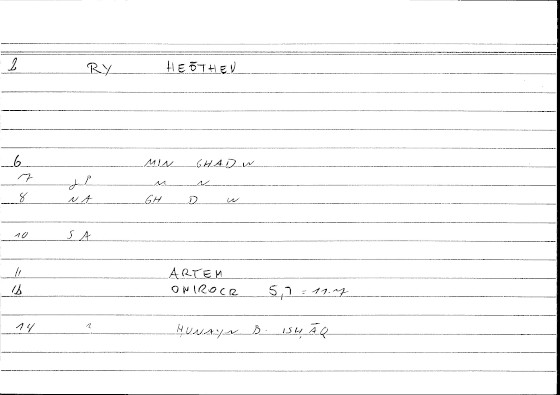 RY HEŠTHEV
6 MIN GHADW
7 JP M N
8 NA GH D W
10 SA
11 ARTEM
ONIROCR 5,7 = 11.7
14 " ḤUNAYN B. ISḤĀQ